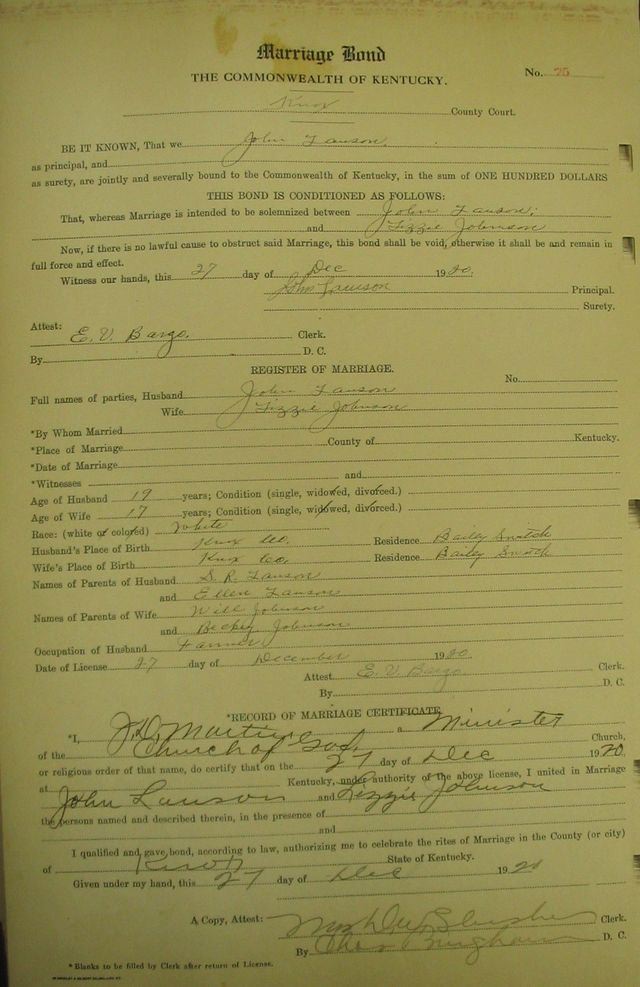 Marriage Bond
THE COMMONWEALTH OF KENTUCKY.
No. 75
Knox County Court.
BE IT KNOWN, That we John Lawson,
as principal, and
as surety, are jointly and severally bound to the Commonwealth of Kentucky, in the sum of ONE HUNDRED DOLLARS
THIS BOND IS CONDITIONED AS FOLLOWS:
That, whereas Marriage is intended to be solemnized between John Lawson,
and Lizzie Johnson
Now, if there is no lawful cause to obstruct said Marriage, this bond shall be void, otherwise it shall be and remain in
full force and effect.
Witness our hands, this 27 day of Dec 1920.
John Lawson Principal.
Surety.
Attest: E. V. Bargo. Clerk.
By D. C.
REGISTER OF MARRIAGE.
No.
Full names of parties, Husband John Lawson
Wife Lizzie Johnson
*By Whom Married
*Place of Marriage County of Kentucky.
*Date of Marriage
*Witnesses and
Age of Husband 19 years; Condition (single, widowed, divorced.)
Age of Wife 17 years; Condition (single, widowed, divorced.)
Race: (white or colored) White
Husband's Place of Birth Knox Co. Residence Bailey Switch
Wife's Place of Birth Knox Co. Residence Bailey Switch
Names of Parents of Husband S. R. Lawson
and Ellen Lawson
Names of Parents of Wife Will Johnson
and Becky Johnson
Occupation of Husband Farmer
Date of License 27 day of December 1920.
Attest E. V. Bargo Clerk.
By D. C.
*RECORD OF MARRIAGE CERTIFICATE
*I, J. D. Martin a Minister
of the Church of God Church,
or religious order of that name, do certify that on the 27 day of Dec 1920
at Kentucky, under authority of the above license, I united in Marriage
John Lawson and Lizzie Johnson
the persons named and described therein, in the presence of
and
I qualified and gave bond, according to law, authorizing me to celebrate the rites of Marriage in the County (or city)
of Knox State of Kentucky.
Given under my hand, this 27 day of Dec 1920
A Copy, Attest: Clerk.
By D. C.
* Blanks to be filled by Clerk after return of License.